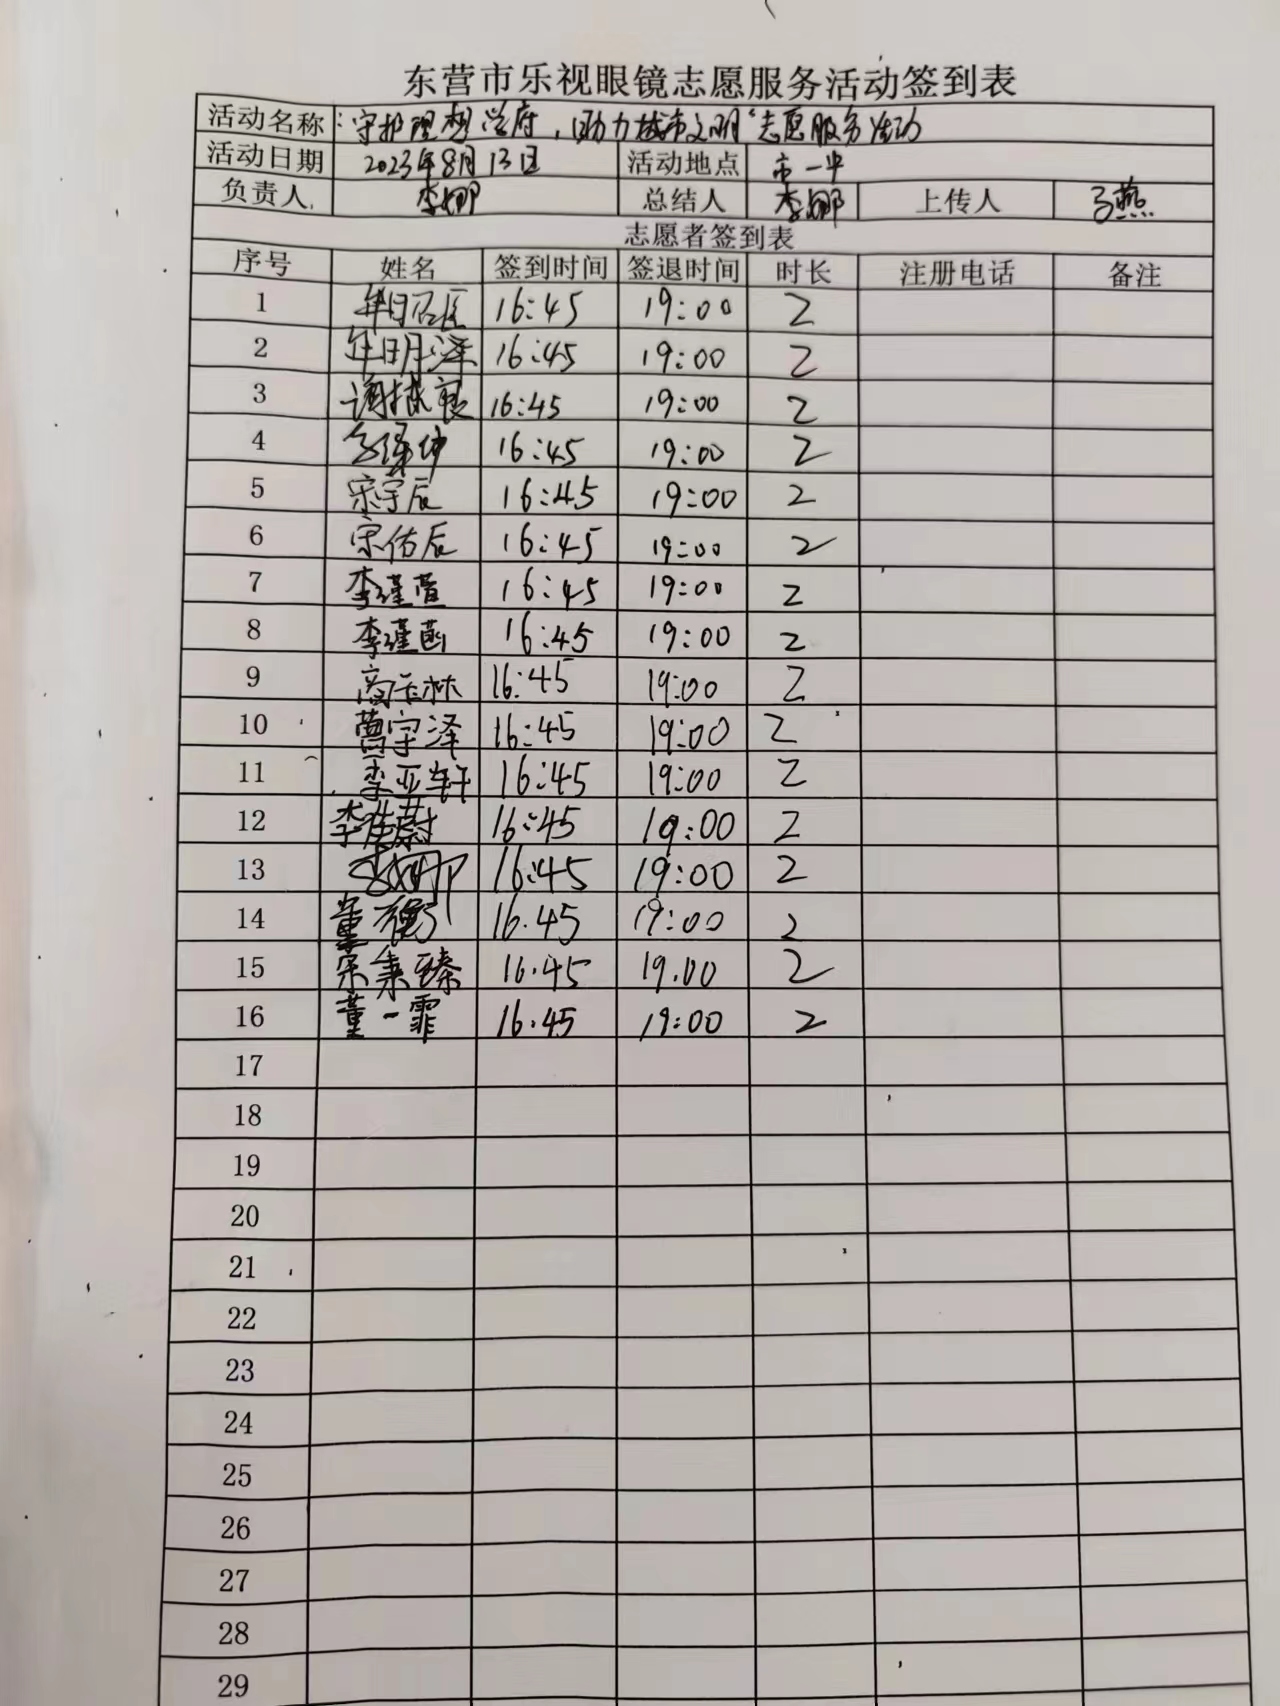 东营市乐视眼镜志愿服务活动签到表
活动名称 “守护理想学府，助力城市文明”志愿服务活动
活动日期 2023年8月13日 活动地点 市一中
负责人 李娜 总结人 李娜 上传人 燕
志愿者签到表
序号 姓名 签到时间 签退时间 时长 注册电话 备注
1 16:45 19:00 2
2 16:45 19:00 2
3 16:45 19:00 2
4 16:45 19:00 2
5 宋宇辰 16:45 19:00 2
6 宋佑辰 16:45 19:00 2
7 李瑾萱 16:45 19:00 2
8 李瑾菡 16:45 19:00 2
9 16:45 19:00 2
10 宇泽 16:45 19:00 2
11 李亚轩 16:45 19:00 2
12 李 蔚 16:45 19:00 2
13 李娜 16:45 19:00 2
14 董 16.45 19:00 2
15 宋秉臻 16.45 19.00 2
16 董一霏 16.45 19:00 2
17
18
19
20
21
22
23
24
25
26
27
28
29